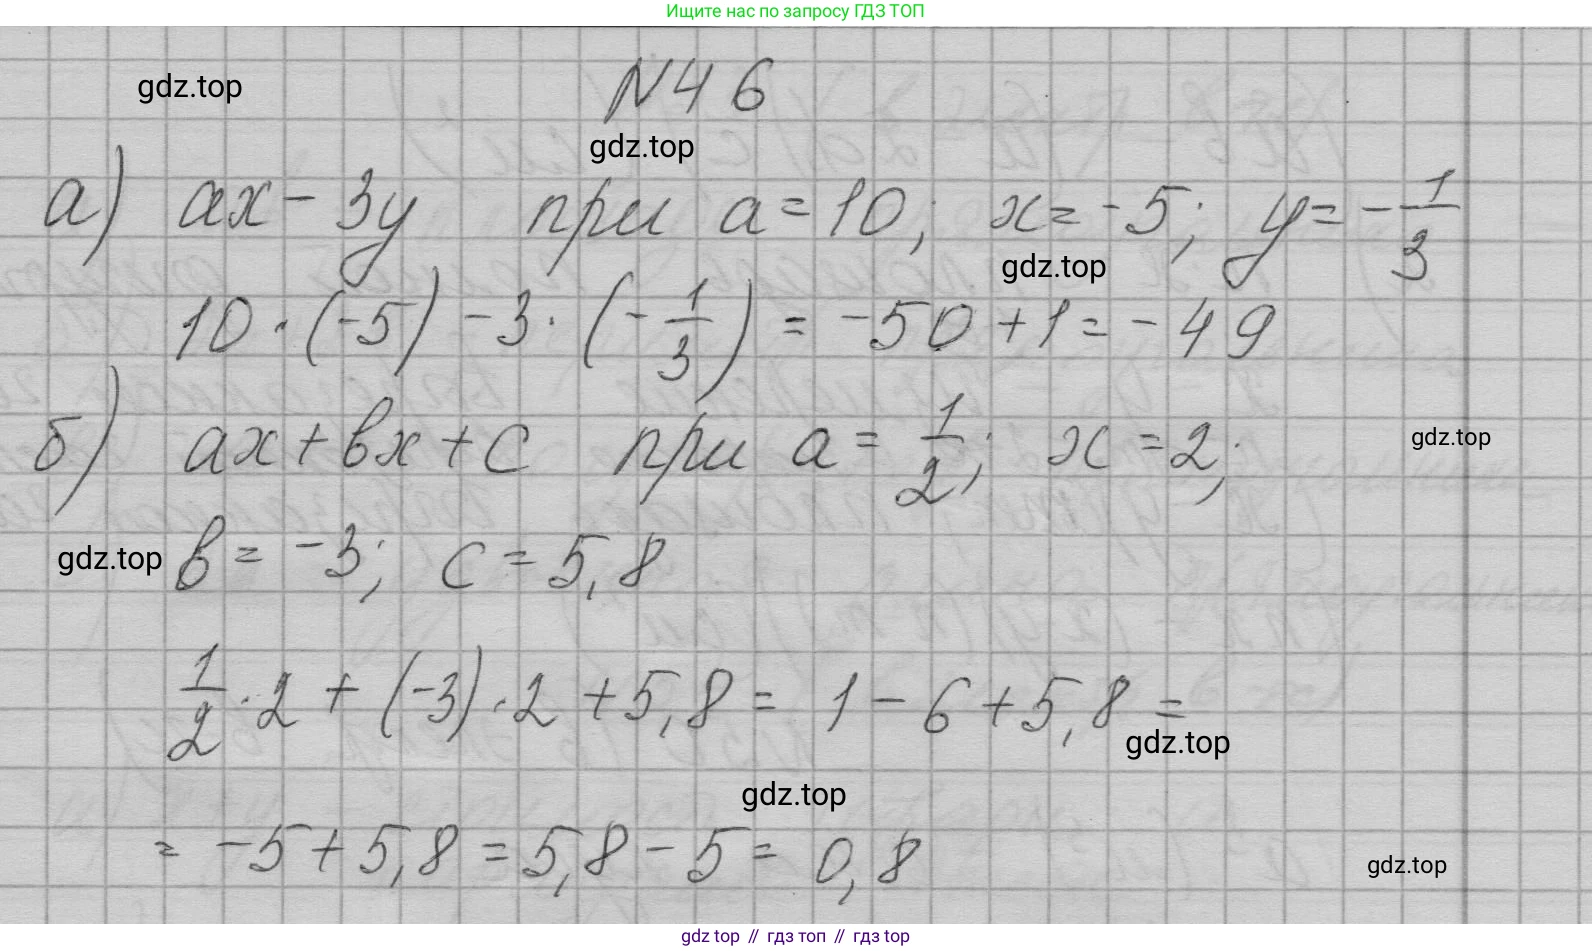 Ищите нас по запросу ГДЗ ТОП
gdz.top
N46
gdz.top
а) ax - 3y при a = 10; x = -5; y = -1/3
gdz.top
10 · (-5) - 3 · (-1/3) = -50 + 1 = -49
б) ax + bx + c при a = 1/2; x = 2;
gdz.top
gdz.top
b = -3; c = 5,8
1/2 · 2 + (-3) · 2 + 5,8 = 1 - 6 + 5,8 =
gdz.top
gdz.top
= -5 + 5,8 = 5,8 - 5 = 0,8
gdz.top
gdz top // гдз топ // гдз top